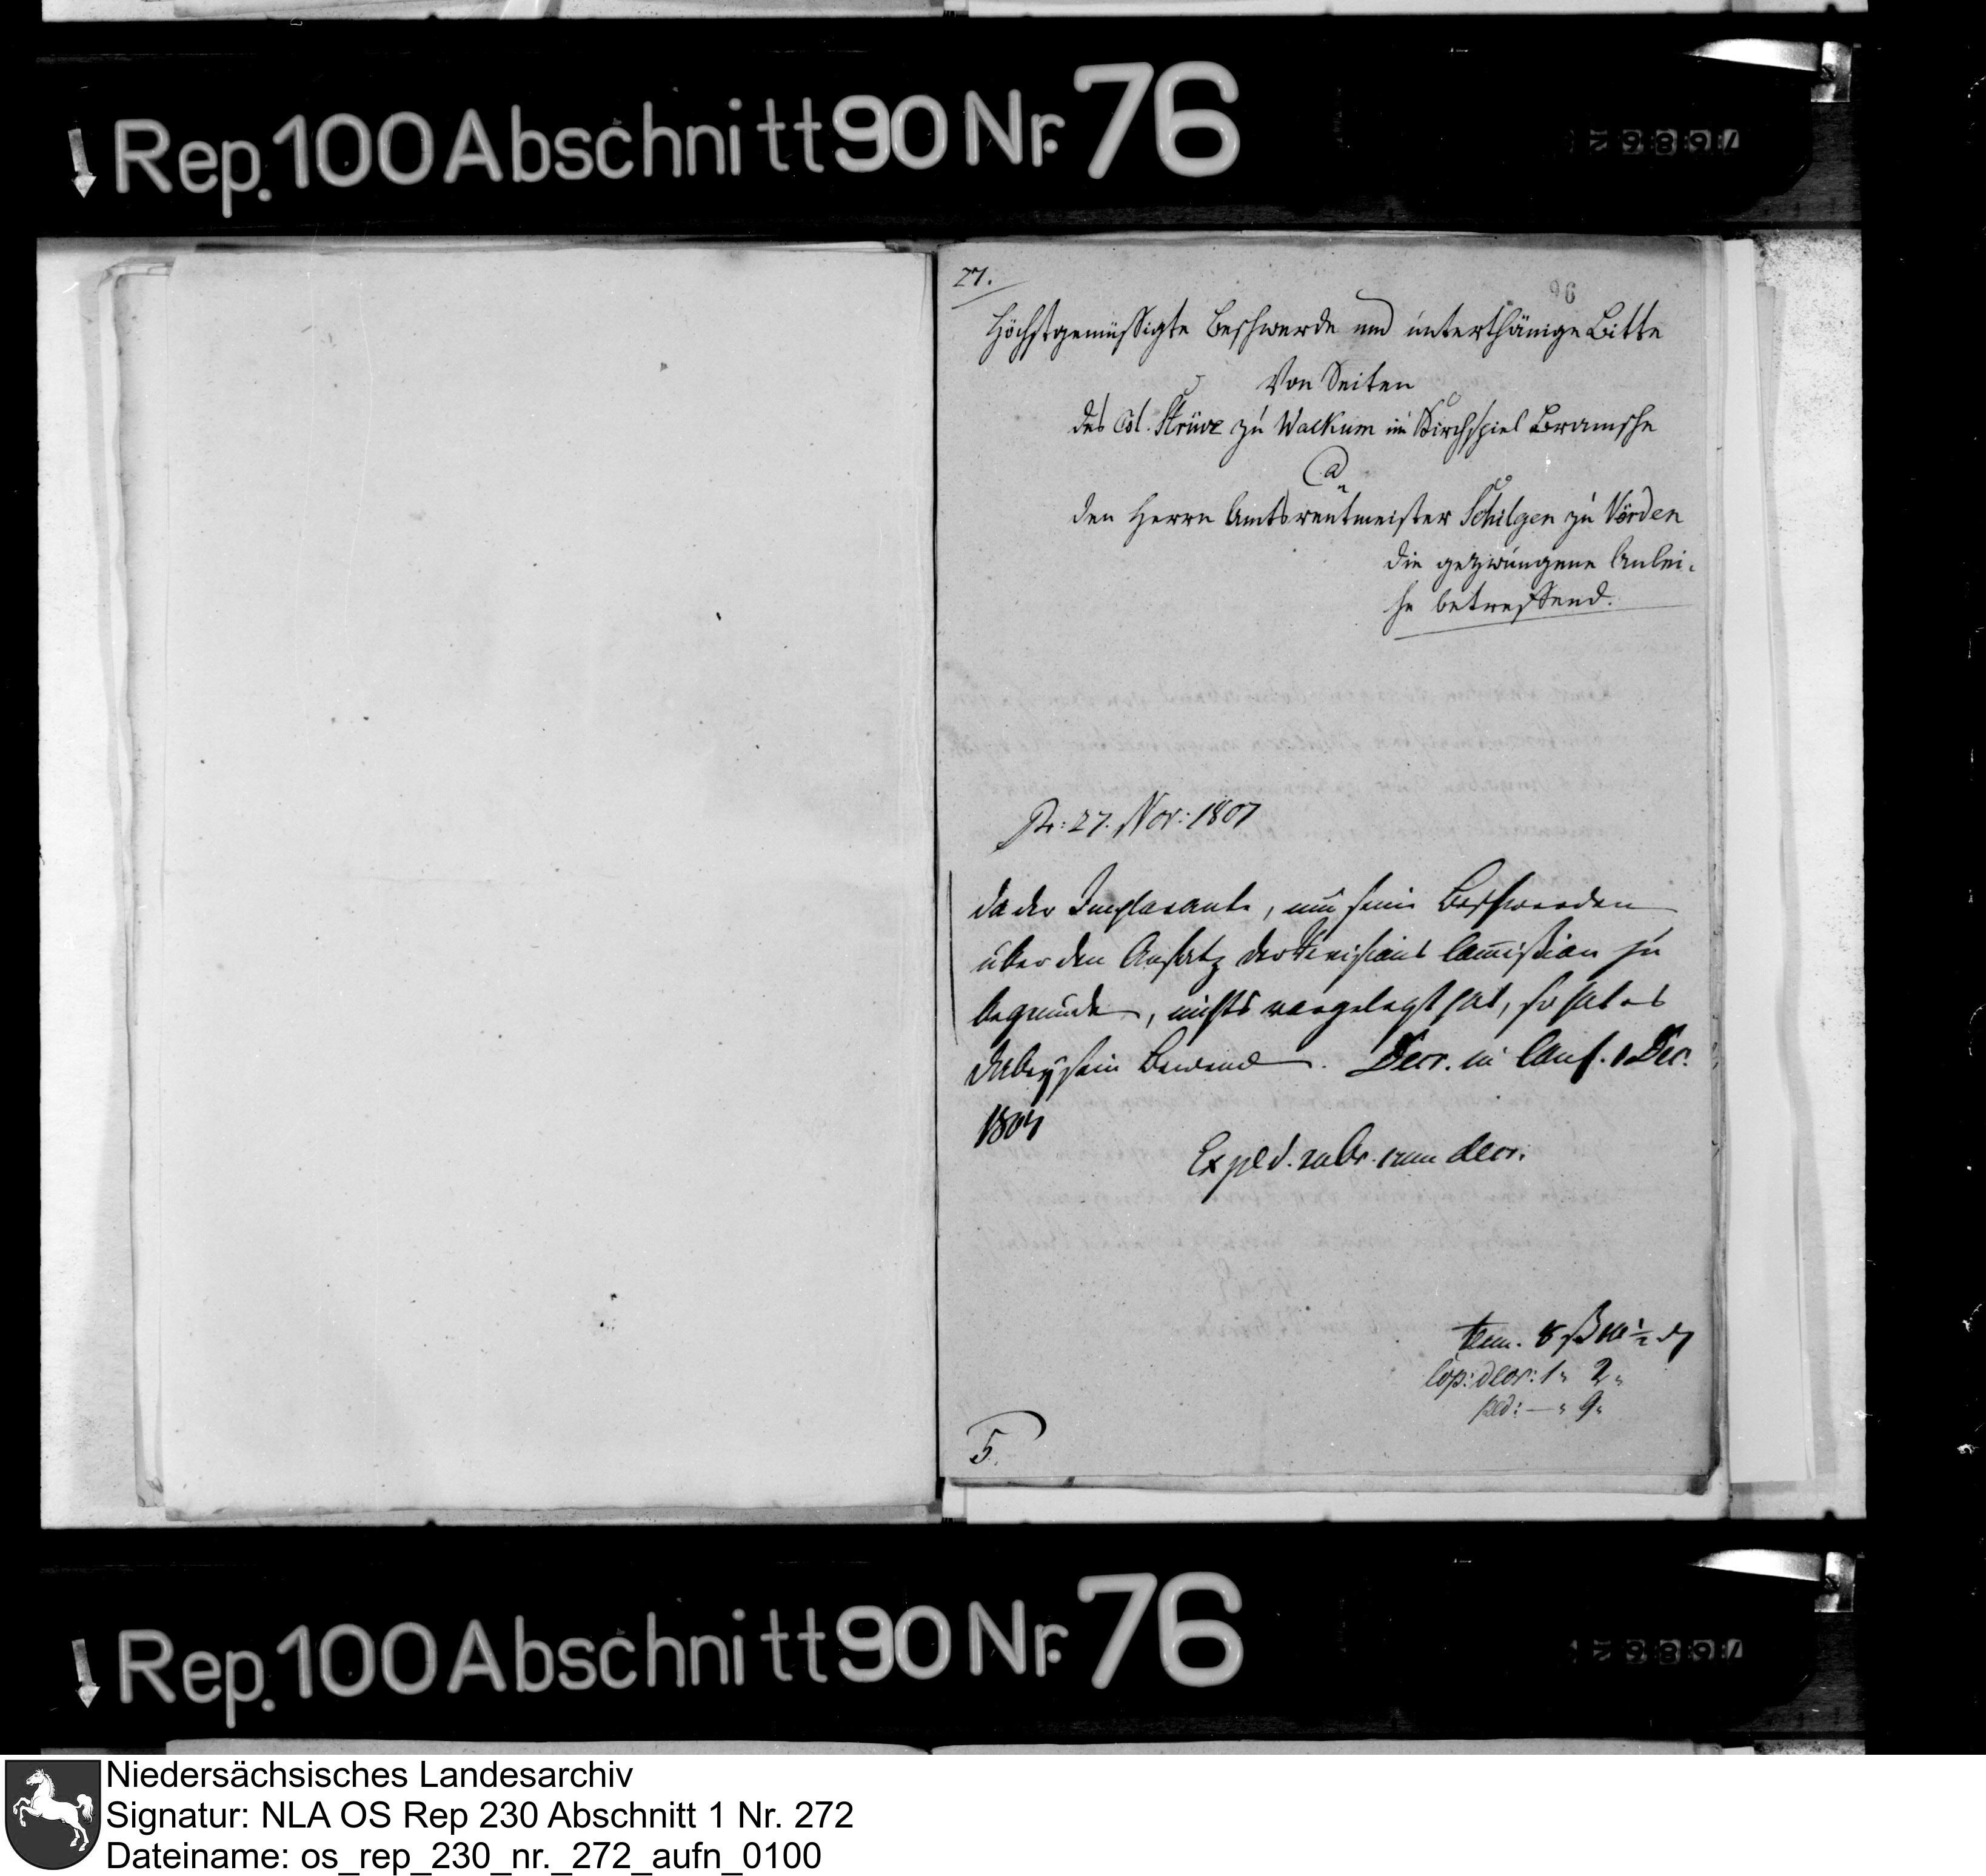 Rep. 100 Abschnitt 90 Nr. 76
27.
96
Höchstgemüssigte Beschwerde und unterthänige Bitte
Von Seiten
des Col. Strüve zu Wackum im Kirchspiel Bramsche
den Herrn Amtsrentmeister Schilgen zu Vörden
die gezwungene Anlei-
he betreffend.
Pr: 27. Nov: 1807
Da der Implorante, um seine Beschwerden
über den Ansatz der Revisions Commission zu
begründen, nichts vorgelegt hat, so hat es
dabey sein Bewenden. Decr. in Conf. 1 Dec.
1807
Exped. rubr. cum decr.
Cop: decr: 1 " 2 "
ped: — " 9 "
5.
Rep. 100 Abschnitt 90 Nr. 76
Niedersächsisches Landesarchiv
Signatur: NLA OS Rep 230 Abschnitt 1 Nr. 272
Dateiname: os_rep_230_nr._272_aufn_0100